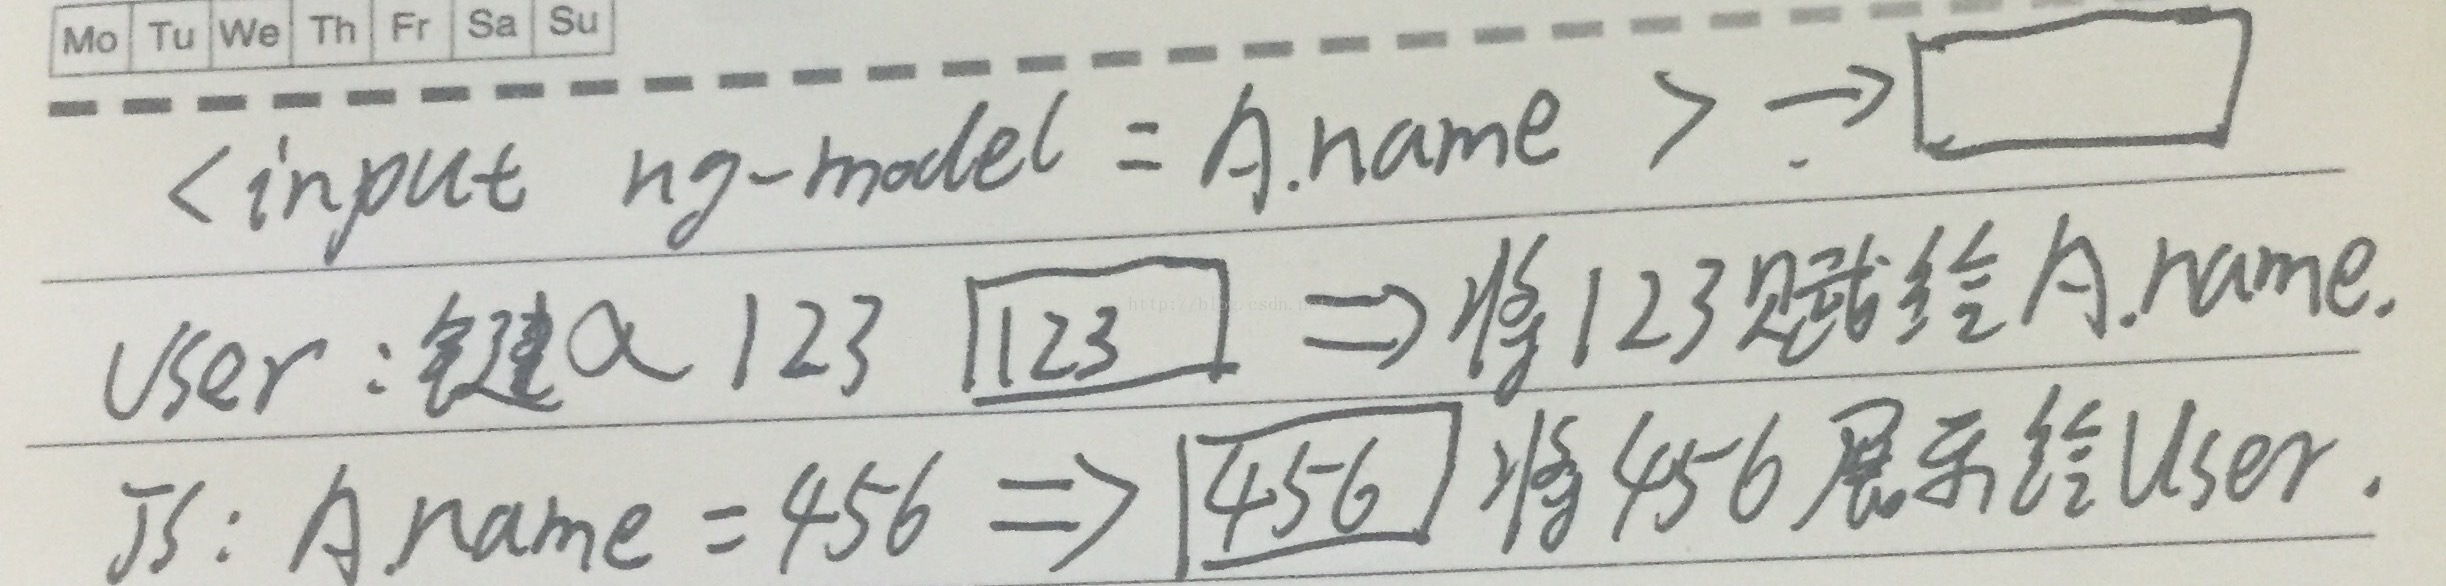 Mo Tu We Th Fr Sa Su
<input ng-model = A.name > →
User : 键入 123 123 ⇒ 将123赋给A.name.
JS : A.name = 456 ⇒ 456 将456展示给User.